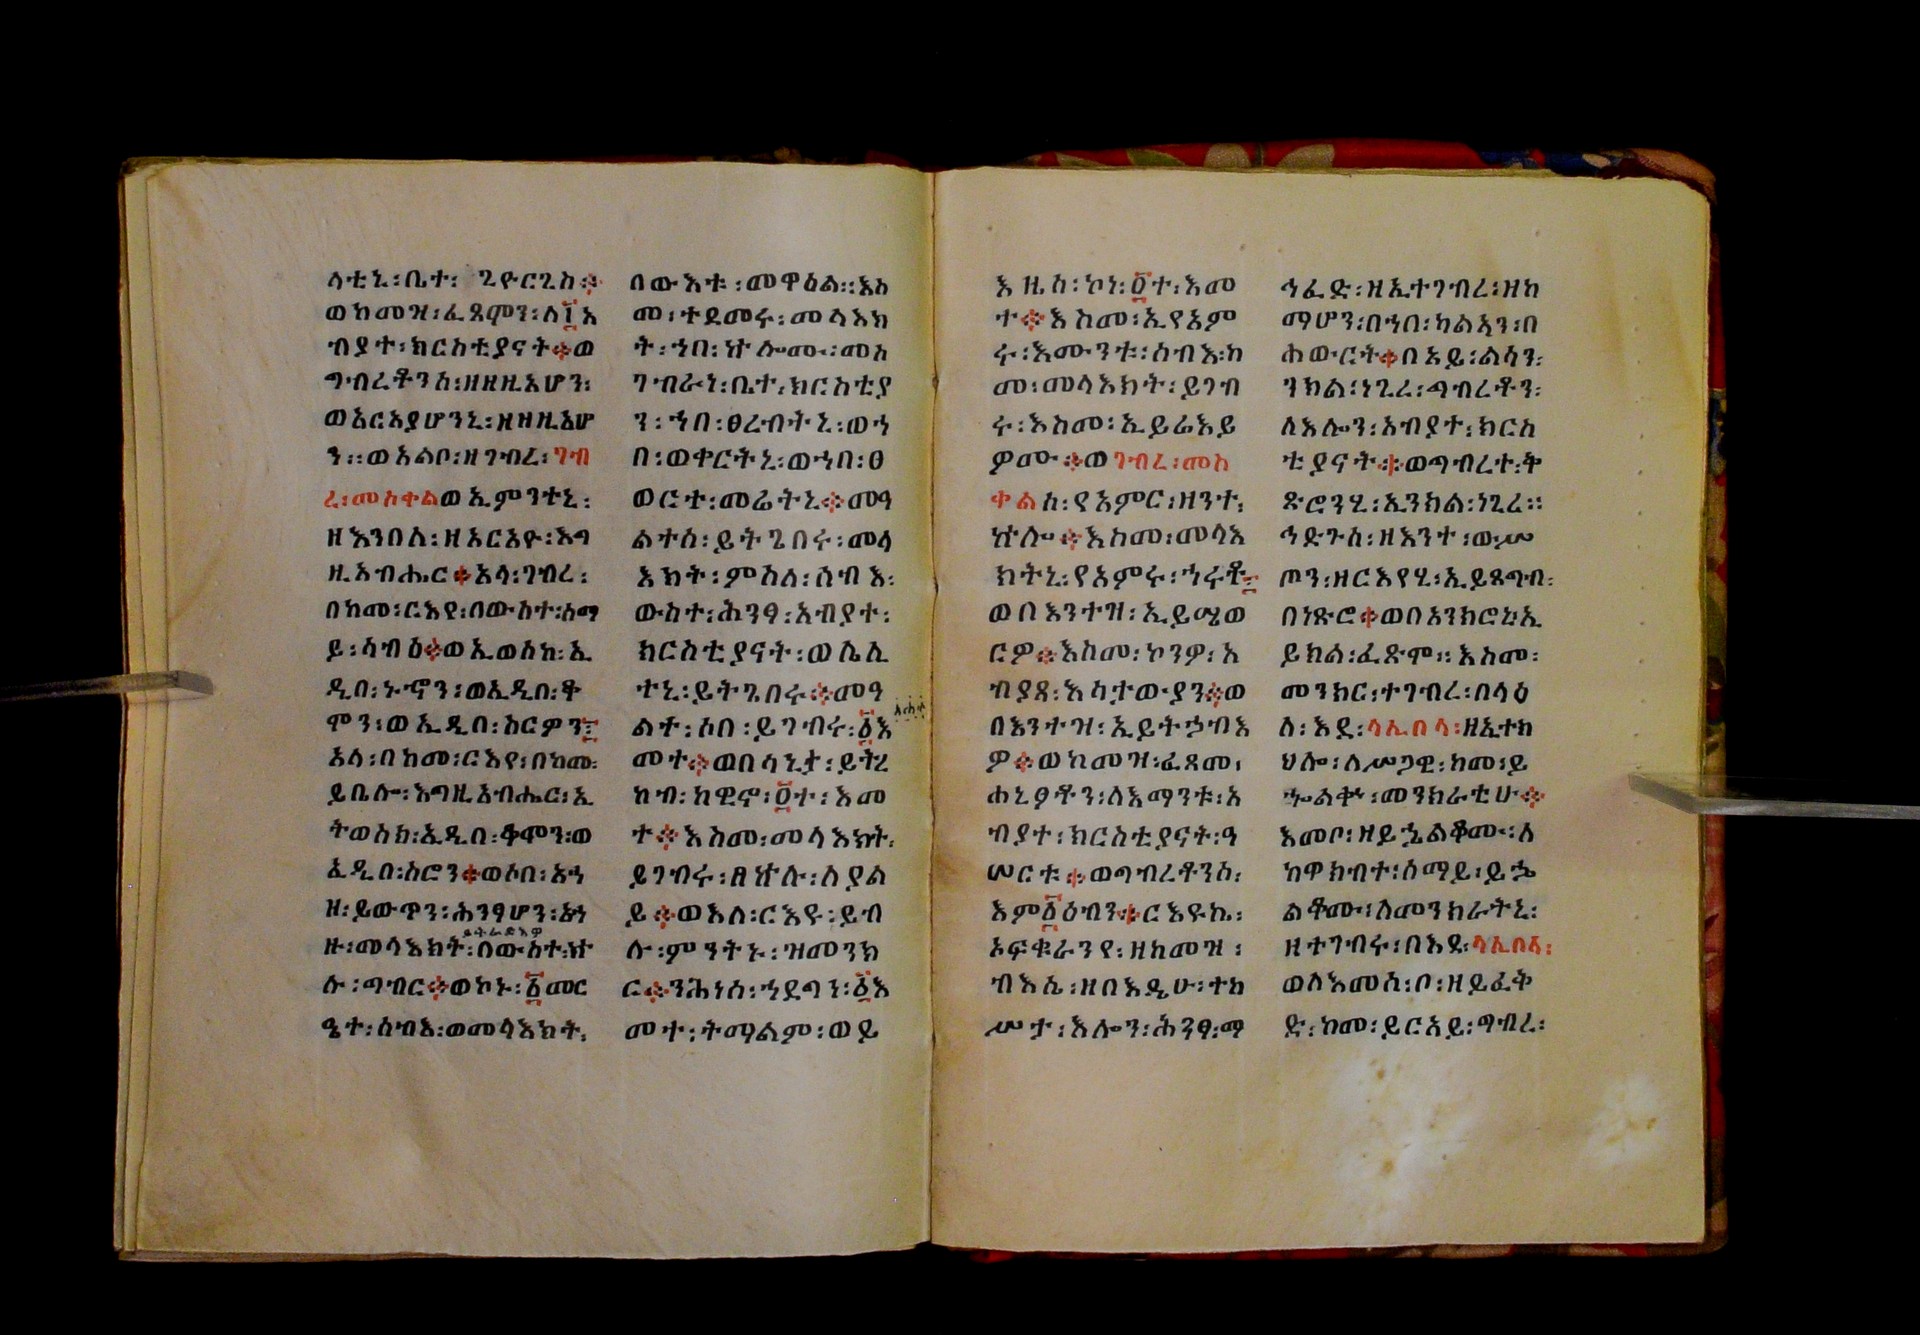 ላቲኒ፡ቤተ፡ ጊዮርጊስ፨
ወከመዝ፡ፈጸሞን፡ለ፲አ
ብያተ፡ክርስቲያናት፨ወ
ግብረቶንሰ፡ዘዘዚአሆን፡
ወአርአያሆንኒ፡ዘዘዚአሆ
ን።ወአልቦ፡ዘገብረ፡ገብ
ረ፡መስቀልወኢምንተኒ፡
ዘእንበለ፡ዘአርአዮ፡እግ
ዚአብሔር፨አላ፡ገብረ፡
በከመ፡ርእየ፡በውስተ፡ሰማ
ይ፡ሳብዕ፨ወኢወሰከ፡ኢ
ዲበ፡ኑኆን፡ወኢዲበ፡ቆ
ሞን፡ወኢዲበ፡ስርዎን፨
አላ፡በከመ፡ርእየ፡በከመ፡
ይቤሎ፡እግዚአብሔር፡ኢ
ትወስክ፡ኢዲበ፡ቆሞን፡ወ
ኢዲበ፡ስሮን፨ወሶበ፡አኀ
ዘ፡ይውጥን፡ሕንፃሆን፡አኀ
ይትራድእዎ
ዙ፡መላእክት፡በውስተ፡ኵ
ሉ፡ግብር፨ወኮኑ፡፪መር
ዔተ፡ሰብእ፡ወመላእክት፡
በውእቱ፡መዋዕል።እስ
መ፡ተደመሩ፡መላእክ
ት፡ኀበ፡ኵሎሙ፡መስ
ገብራነ፡ቤተ፡ክርስቲያ
ን፡ኀበ፡ፀረብትኒ፡ወኀ
በ፡ወቀርትኒ፡ወኀበ፡ፀ
ወርተ፡መሬትኒ፨መዓ
ልተሰ፡ይትጌበሩ፡መላ
እክት፡ምስለ፡ሰብእ፡
ውስተ፡ሕንፃ፡አብያተ፡
ክርስቲያናት፡ወሌሊ
ተኒ፡ይትጌበሩ፨መዓ
ልተ፡ሶበ፡ይገብሩ፡፩እ
መተ፨ወበሳኒታ፡ይትረ
ከብ፡ከዊኖ፡፬ተ፡እመ
ተ፨እስመ፡መላእክት፡
ይገብሩ፡ዘኵሉ፡ሰያል
ይ፨ወእለ፡ርእዩ፡ይብ
ሉ፡ምንትኑ፡ዝመንክ
ር፨ንሕነሰ፡ኀደግነ፡፩እ
መተ፡ትማልም፡ወይ
እዜሰ፡ኮነ፡፬ተ፡እመ
ተ፨እስመ፡ኢየአም
ሩ፡እሙንቱ፡ሰብእ፡ከ
መ፡መላእክት፡ይገብ
ሩ፡እስመ፡ኢይሬእይ
ዎሙ፨ወገብረ፡መስ
ቀልሰ፡የአምር፡ዘንተ፡
ኵሎ፨እስመ፡መላእ
ክትኒ፡የአምሩ፡ኂሩቶ፨
ወበእንተዝ፡ኢይሜወ
ርዎ፨እስመ፡ኮንዎ፡አ
ብያጸ፡እሳታውያን፨ወ
በእንተዝ፡ኢይትኃብእ
ዎ፨ወከመዝ፡ፈጸመ፡
ሐኒፆቶን፡ለእማንቱ፡አ
ብያተ፡ክርስቲያናት፡ዓ
ሠርቱ፨ወግብረቶንሰ፡
እም፩ዕብን፨ርእዩኬ፡
አፍቁራንየ፡ዘከመዝ፡
ብእሴ፡ዘበእዴሁ፡ተከ
ሥታ፡እሎን፡ሕንፃ፡ማ
ኅፈድ፡ዘኢተገብረ፡ዘከ
ማሆን፡በኀበ፡ካልኣን፡በ
ሕውርት፨በአይ፡ልሳን፡
ንክል፡ነጊረ፡ግብረቶን፡
ለእሎን፡አብያተ፡ክርስ
ቲያናት፨ወግብረተ፡ቅ
ጽሮንሂ፡ኢንክል፡ነጊረ።
ኅድጉሰ፡ዘእንተ፡ውሥ
ጦን፡ዘርእየሂ፡ኢይጸግብ፡
በነጽሮ፨ወበአንክሮኒ፡ኢ
ይክል፡ፈጽሞ።እስመ፡
መንክር፡ተገብረ፡በሳዕ
ለ፡እደ፡ላሊበላ፡ዘኢተክ
ህሎ፡ለሥጋዊ፡ከመ፡ይ
ኈልቍ፡መንክራቲሁ፨
እመቦ፡ዘይኄልቆሙ፡ለ
ከዋክብተ፡ሰማይ፡ይኄ
ልቆሙ፡ለመንክራትኒ፡
ዘተገብሩ፡በእደ፡ላሊበላ፡
ወለእመሰ፡ቦ፡ዘይፈቅ
ድ፡ከመ፡ይርአይ፡ግብረ፡